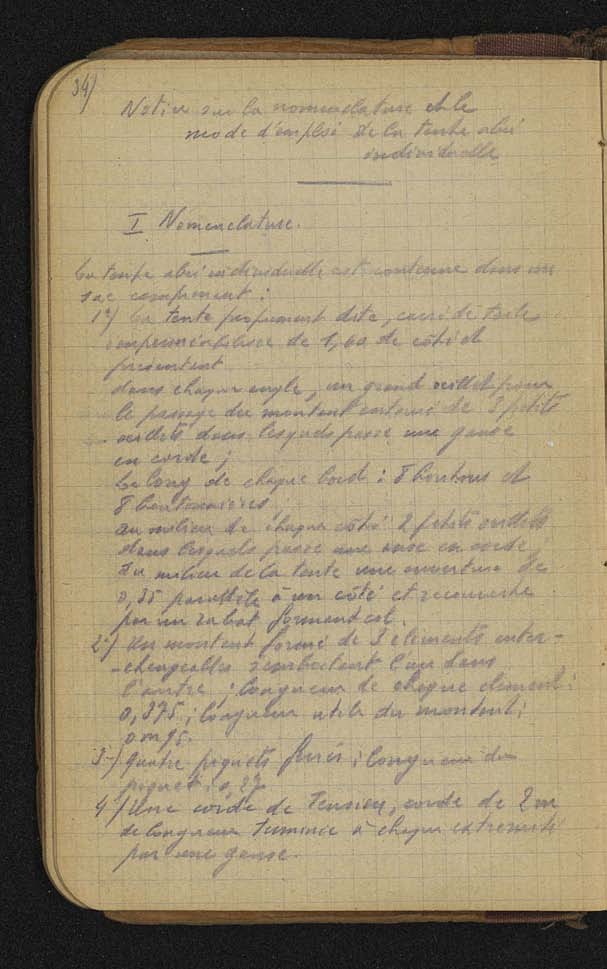 34)
Notice sur la nomenclature et le
mode d'emploi de la tente abri
individuelle
I Nomenclature.
La tente abri individuelle est contenue dans un
sac comprenant :
1º) La tente proprement dite, carré de toile
imperméabilisée de 1,60 de côté et
présentant
dans chaque angle, un grand oeillet pour
le passage du montant entouré de 3 petits
oeillets dans lesquels passe une ganse
en corde ;
Le long de chaque bord : 8 boutons et
8 boutonnières
au milieu de chaque côté 2 petits oeillets
dans lesquels passe une anse en corde
Au milieu de la tente une ouverture de
0,35 parallèle à un côté et recouverte
par un rabat formant col.
2º) Un montant formé de 3 éléments inter-
-changeables s'emboitant l'un dans
l'autre ; longueur de chaque élément :
0,375 ; longueur utile du montant :
3º) Quatre piquets ferrés ; longueur du
piquet : 0,27
4º) Une corde de tension, corde de 2m
de longueur terminée à chaque extremité
par une ganse.